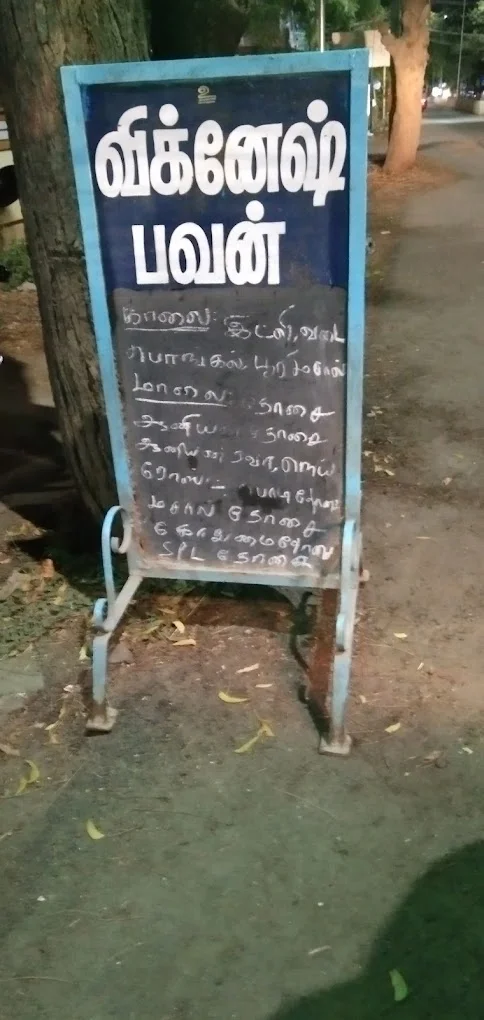 உ
விக்னேஷ்
பவன்
காலை: இட்லி, வடை
பொங்கல், பூரி
மாலை: தோசை
ஆனியன் தோசை
ஆனியன் ரவா, நெய்
ரோஸ்ட் பொடிதோசை
மசால் தோசை
கோதுமைதோசை
SPL தோசை